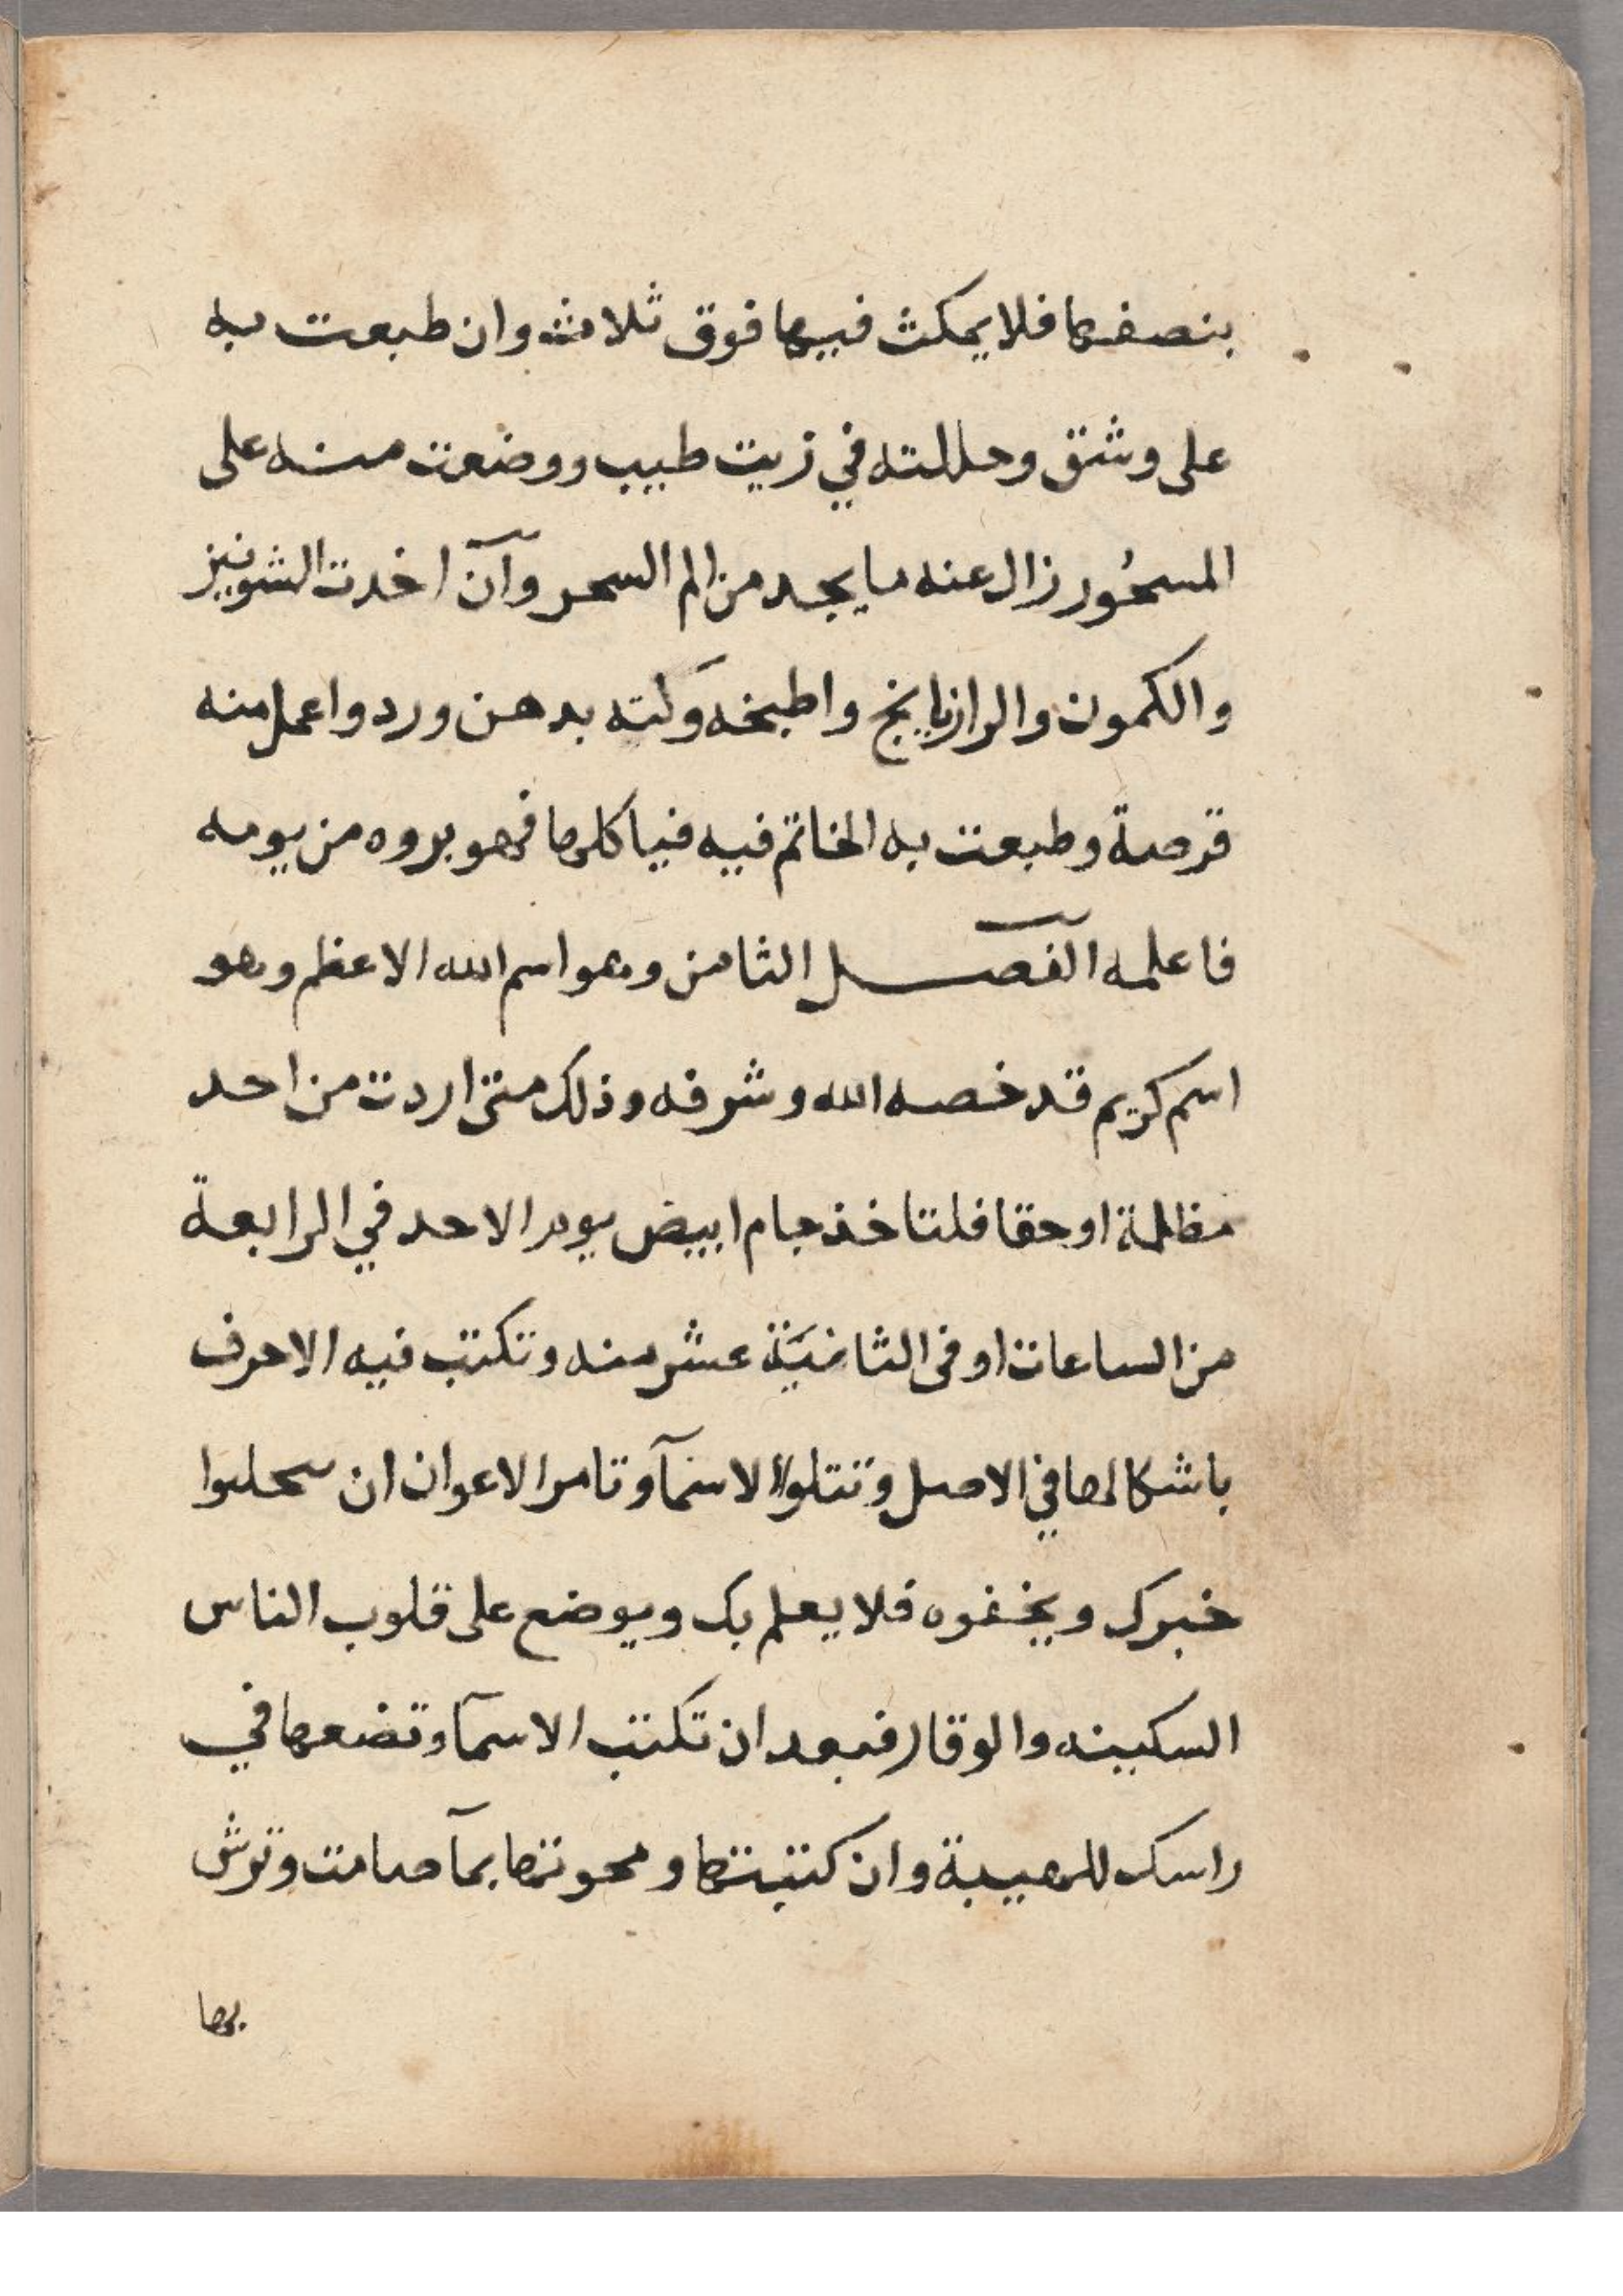 بنصفها فلا يمكث فيها فوق ثلاث وان طبعت به
على وشق وحللته في زيت طيب ووضعت منه على
المسحور زال عنه ما يجد من الم السحر وآن اخدت الشونيز
والكمون والرازيانج واطبخه ولته بدهن ورد واعمل منه
قرصة وطبعت به الخاتم فيه فياكلها فهو بروه من يومه
فاعلمه الفصل الثامن وهو اسم الله الاعظم وهو
اسم كريم قد خصه الله وشرفه وذلك متى اردت من احد
مظلمة او حقا فلتاخذ جام ابيض يوم الاحد في الرابعة
من الساعات او فى الثانية عشر منه وتكتب فيه الاحرف
باشكالها في الاصل وتتلوا الاسمآ وتامر الاعوان ان
خبرك ويخفوه فلا يعلم بك ويوضع على قلوب الناس
السكينه والوقار فبعد ان تكتب الاسمآ وتضعها في
راسك للهيبة وان كتبتها ومحوتها بمآ صامت وترش
بها